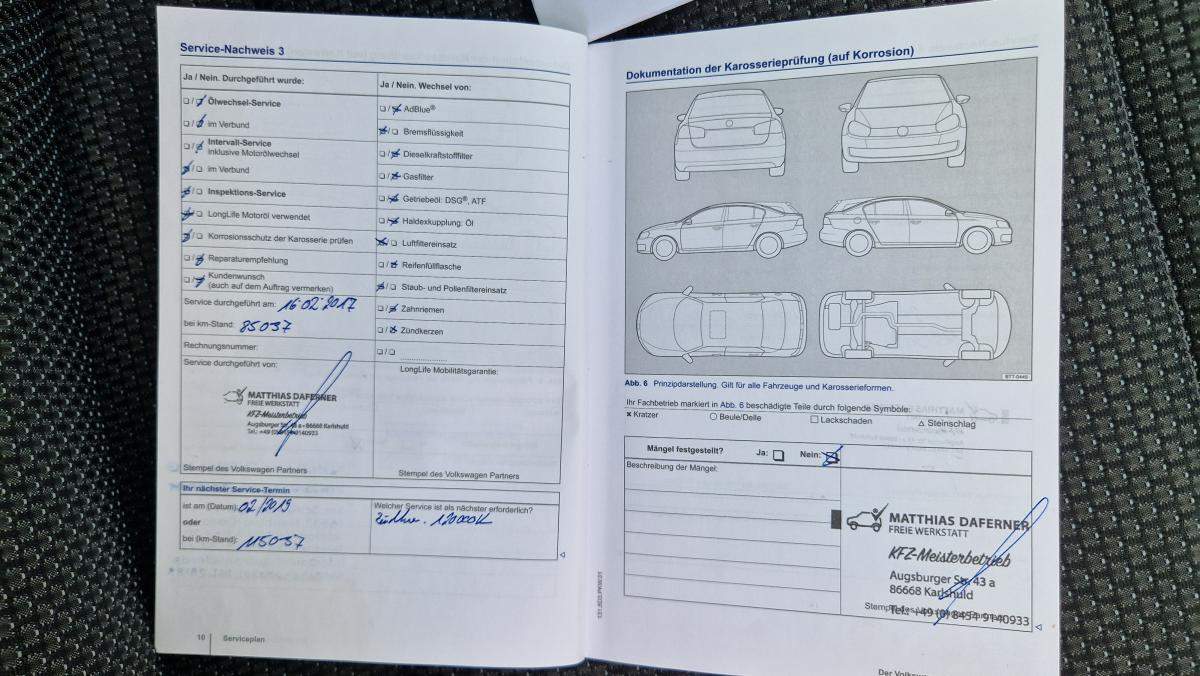 Service-Nachweis 3
Ja / Nein. Durchgeführt wurde:
Ölwechsel-Service
im Verbund
Intervall-Service
inklusive Motorölwechsel
im Verbund
Inspektions-Service
LongLife Motoröl verwendet
Korrosionsschutz der Karosserie prüfen
Reparaturempfehlung
Kundenwunsch
(auch auf dem Auftrag vermerken)
Service durchgeführt am: 16.02.2017
bei km-Stand: 85037
Rechnungsnummer:
Service durchgeführt von:
MATTHIAS DAFERNER
FREIE WERKSTATT
KFZ-Meisterbetrieb
Augsburger Str. 43 a • 86668 Karlshuld
Tel.: +49 (0) 8454 9140933
Stempel des Volkswagen Partners
Ja / Nein. Wechsel von:
AdBlue®
Bremsflüssigkeit
Dieselkraftstofffilter
Gasfilter
Getriebeöl: DSG®, ATF
Haldexkupplung: Öl
Luftfiltereinsatz
Reifenfüllflasche
Staub- und Pollenfiltereinsatz
Zahnriemen
Zündkerzen
LongLife Mobilitätsgarantie:
Stempel des Volkswagen Partners
Ihr nächster Service-Termin
ist am (Datum): 02/2019
oder
bei (km-Stand): 115037
Welcher Service ist als nächster erforderlich?
120000
10 Serviceplan
Dokumentation der Karosserieprüfung (auf Korrosion)
B7T-0449
Abb. 6 Prinzipdarstellung. Gilt für alle Fahrzeuge und Karosserieformen.
Ihr Fachbetrieb markiert in Abb. 6 beschädigte Teile durch folgende Symbole:
x Kratzer ○ Beule/Delle □ Lackschaden △ Steinschlag
Mängel festgestellt? Ja: Nein:
Beschreibung der Mängel:
MATTHIAS DAFERNER
FREIE WERKSTATT
KFZ-Meisterbetrieb
Augsburger Str. 43 a
86668 Karlshuld
Tel.: +49 (0) 8454 9140933
Der Volksw